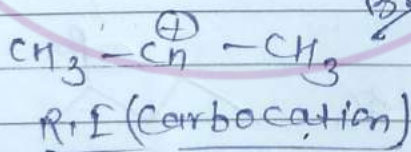 CH₃ - C⊕H - CH₃
R.I (Carbocation)